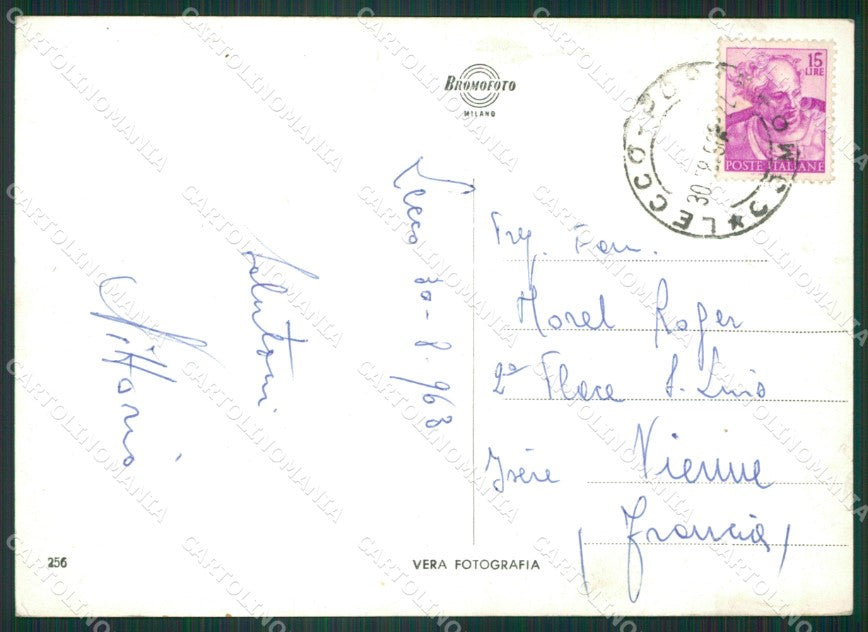 BROMOFOTO
MILANO
15
LIRE
POSTE ITALIANE
LECCO
30
Lecco 30-8-963
Salutoni
Vittorio
Fam.
Morel Roger
2a Place S. Luis
Isère Vienne
(Francia)
256
VERA FOTOGRAFIA
CARTOLINOMANIA